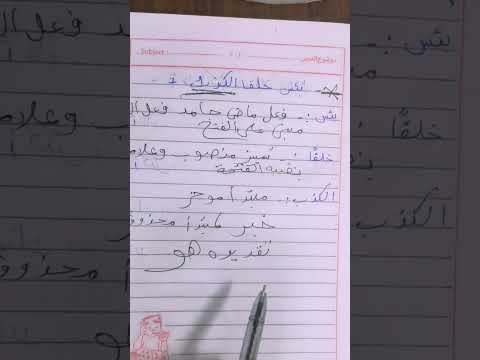 Subject : موضوع الدرس
بئس خلقا الكذب
بئس :- فعل ماضي جامد فعل
مبني على الفتح
خلقًا :- تمييز منصوب وعلا
نصبه الفتحة
الكذب :- مبتدأ مؤخر
خبر لمبتدأ محذوف
تقديره هو